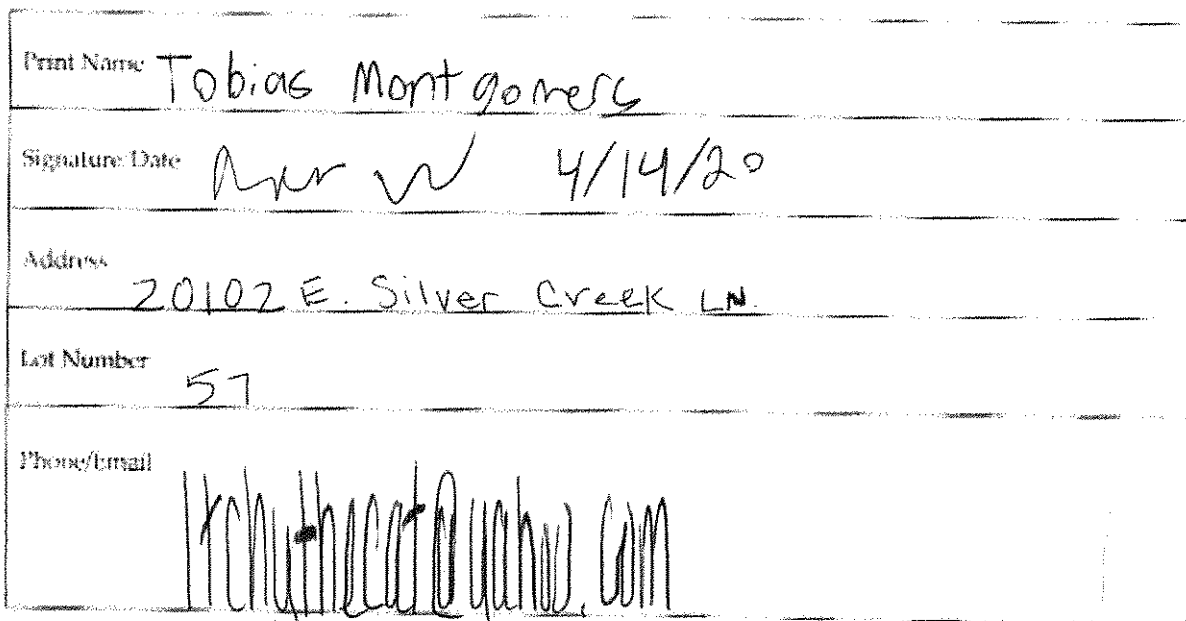 Print Name Tobias Montgomery
Signature/Date 4/14/20
Address
20102 E. Silver Creek LN.
Lot Number
57
Phone/Email
Itchythecat@yahoo.com